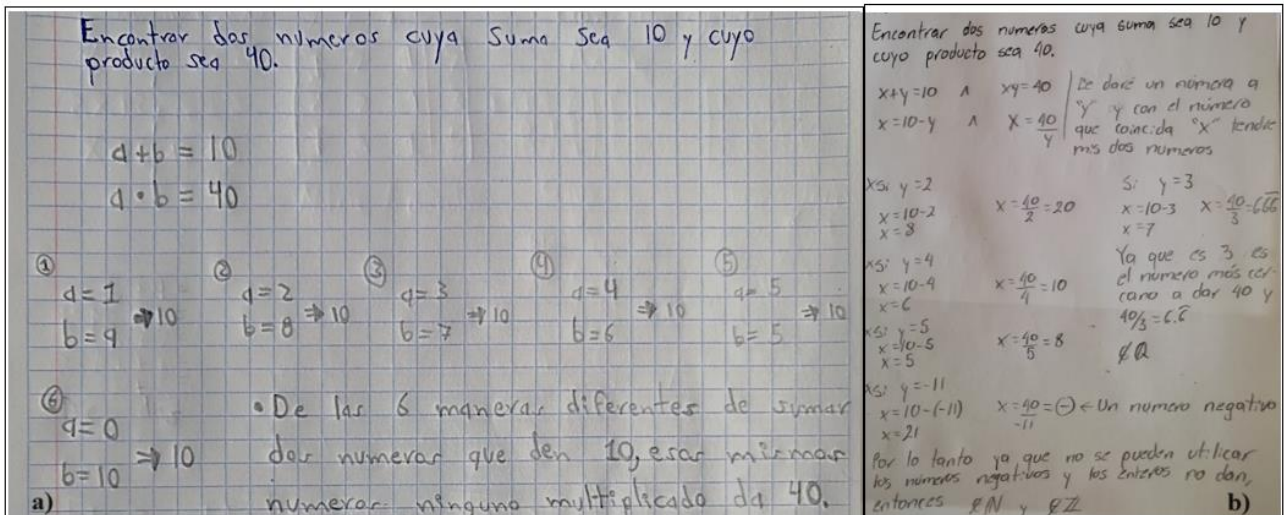 Encontrar dos números cuya suma sea 10 y cuyo
producto sea 40.
a+b = 10
a•b = 40
① ② ③ ④ ⑤
a= 1 a=2 a= 3 a=4 a= 5
⇒10 ⇒ 10 ⇒10 ⇒ 10 ⇒ 10
b= 9 b= 8 b= 7 b=6 b= 5
⑥
a=0
b=10 ⇒ 10
• De las 6 maneras diferentes de sumar
dos numeros que den 10, esas mismas
numeros ninguno multiplicado da 40.
a)
Encontrar dos numeros cuya suma sea 10 y
cuyo producto sea 40.
x+y=10 ∧ xy=40
x=10-y ∧ x=40/y
Le daré un número a
"y" y con el número
que coincida "x" tendre
mis dos numeros
x Si y=2
x=10-2 x=40/2=20
x=8
Si y=3
x=10-3 x=40/3=6.66
x=7
Ya que es 3 es
el numero más cer-
cano a dar 40 y
40/3=6.6
∉Q
x Si y=4
x=10-4 x=40/4=10
x=6
x Si y=5
x=10-5 x=40/5=8
x=5
x Si y=-11
x=10-(-11) x=40/-11=(-) ← Un numero negativo
x=21
Por lo tanto ya que no se pueden utilicar
los números negativos y los enteros no dan,
entonces ∉N y ∉Z
b)